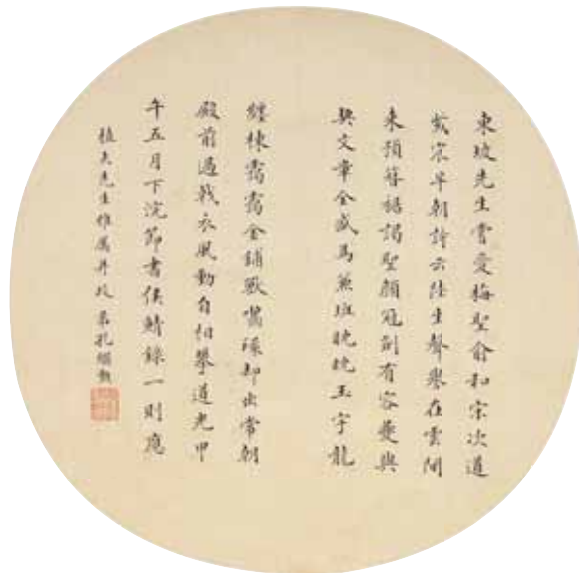 東坡先生嘗愛梅聖俞和宋次道
宸早朝詩云陸生聲譽在雲間
未預簪裾謁聖顏冠劍有容夔與
契文章全盛馬兼班玉宇龍
纏棟靄靄金鋪獸嚙環却出常朝
殿前過戟衣風動自相攀道光甲
午五月下浣節書侯鯖錄一則應
植夫先生雅屬并政 弟孔繼勳